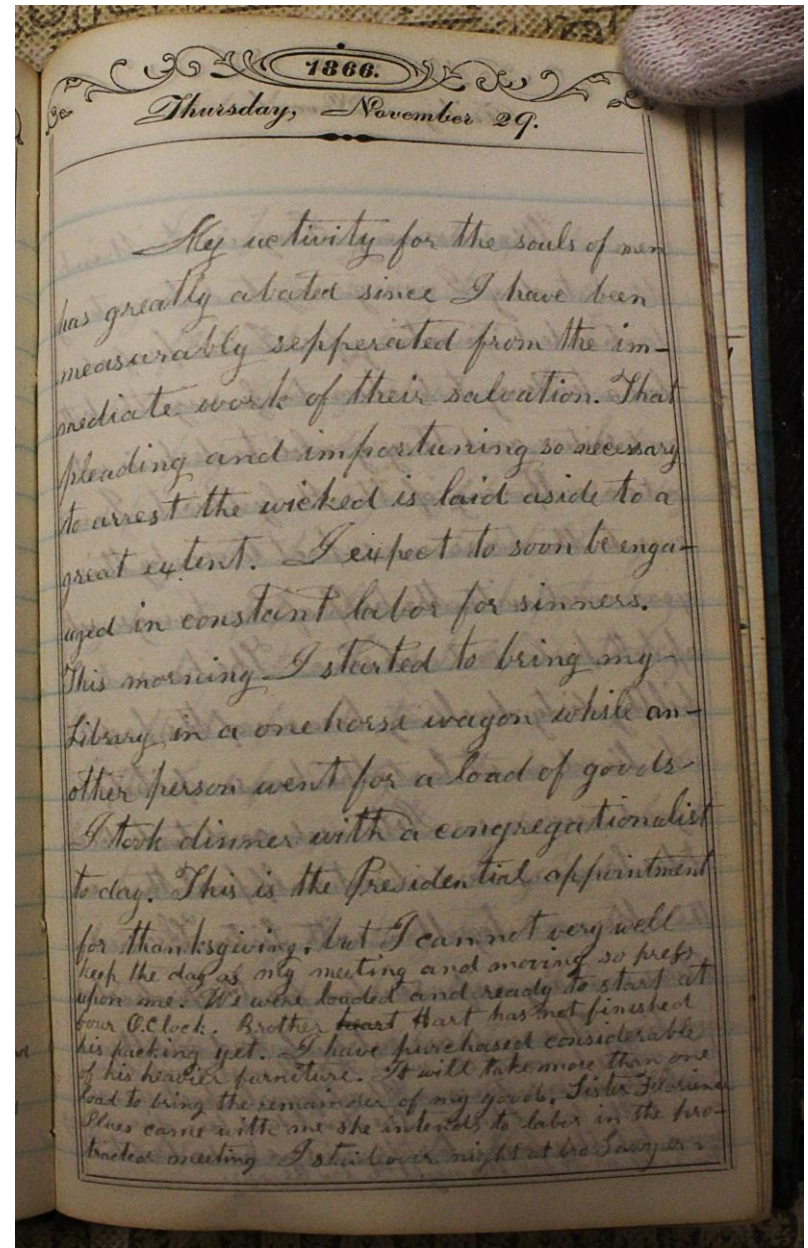 1866.
Thursday, November 29.
My activity for the souls of men
has greatly abated since I have been
measurably sepperated from the im-
mediate work of their salvation. That
pleading and importuning so necessary
to arrest the wicked is laid aside to a
great extent. I expect to soon be enga-
aged in constant labor for sinners.
This morning I started to bring my
Library in a one horse wagon while an-
other person went for a load of goods
I took dinner with a congregationalist
to day. This is the Presidential appointment
for thanksgiving, but I can not very well
keep the day as my meeting and moving so press
upon me. We were loaded and ready to start at
four O.Clock. Brother heart Hart has not finished
his packing yet. I have purchased considerable
of his heavier furniture. It will take more than one
load to bring the remainder of my goods. Sister
came with me she intends to labor in the pro-
tracted meeting I staid over night at bro Sawyers